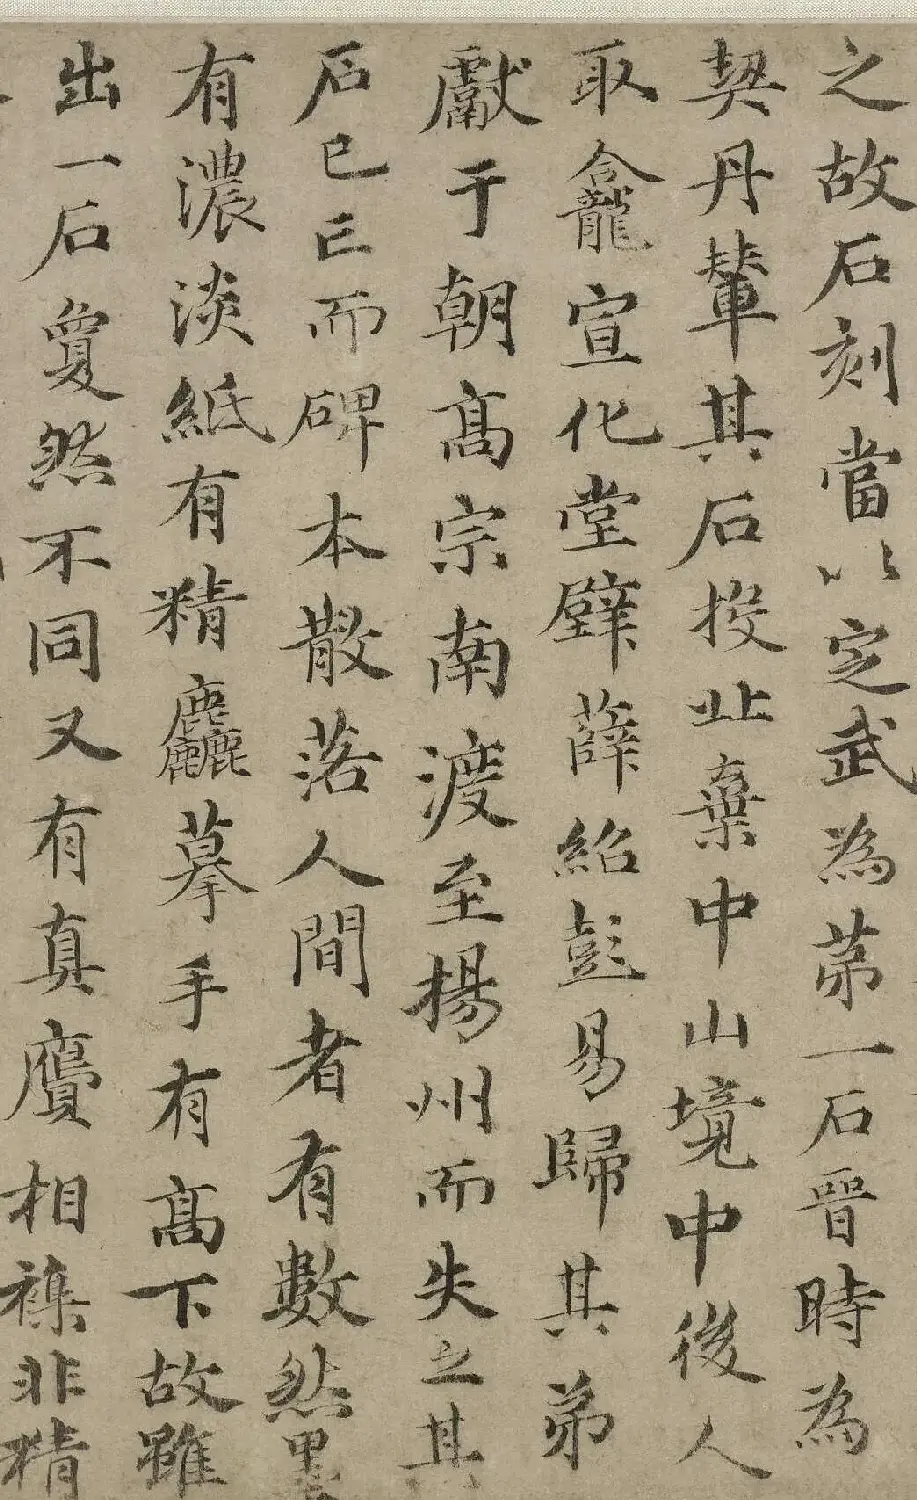 之故石刻當以定武為第一石晉時為
契丹輦其石投北棄中山境中後人
取龕宣化堂壁薛紹彭易歸其弟
獻于朝高宗南渡至揚州而失之其
石已亡而碑本散落人間者有數然墨
有濃淡紙有精麤摹手有高下故雖
出一石敻然不同又有真贗相襍非精